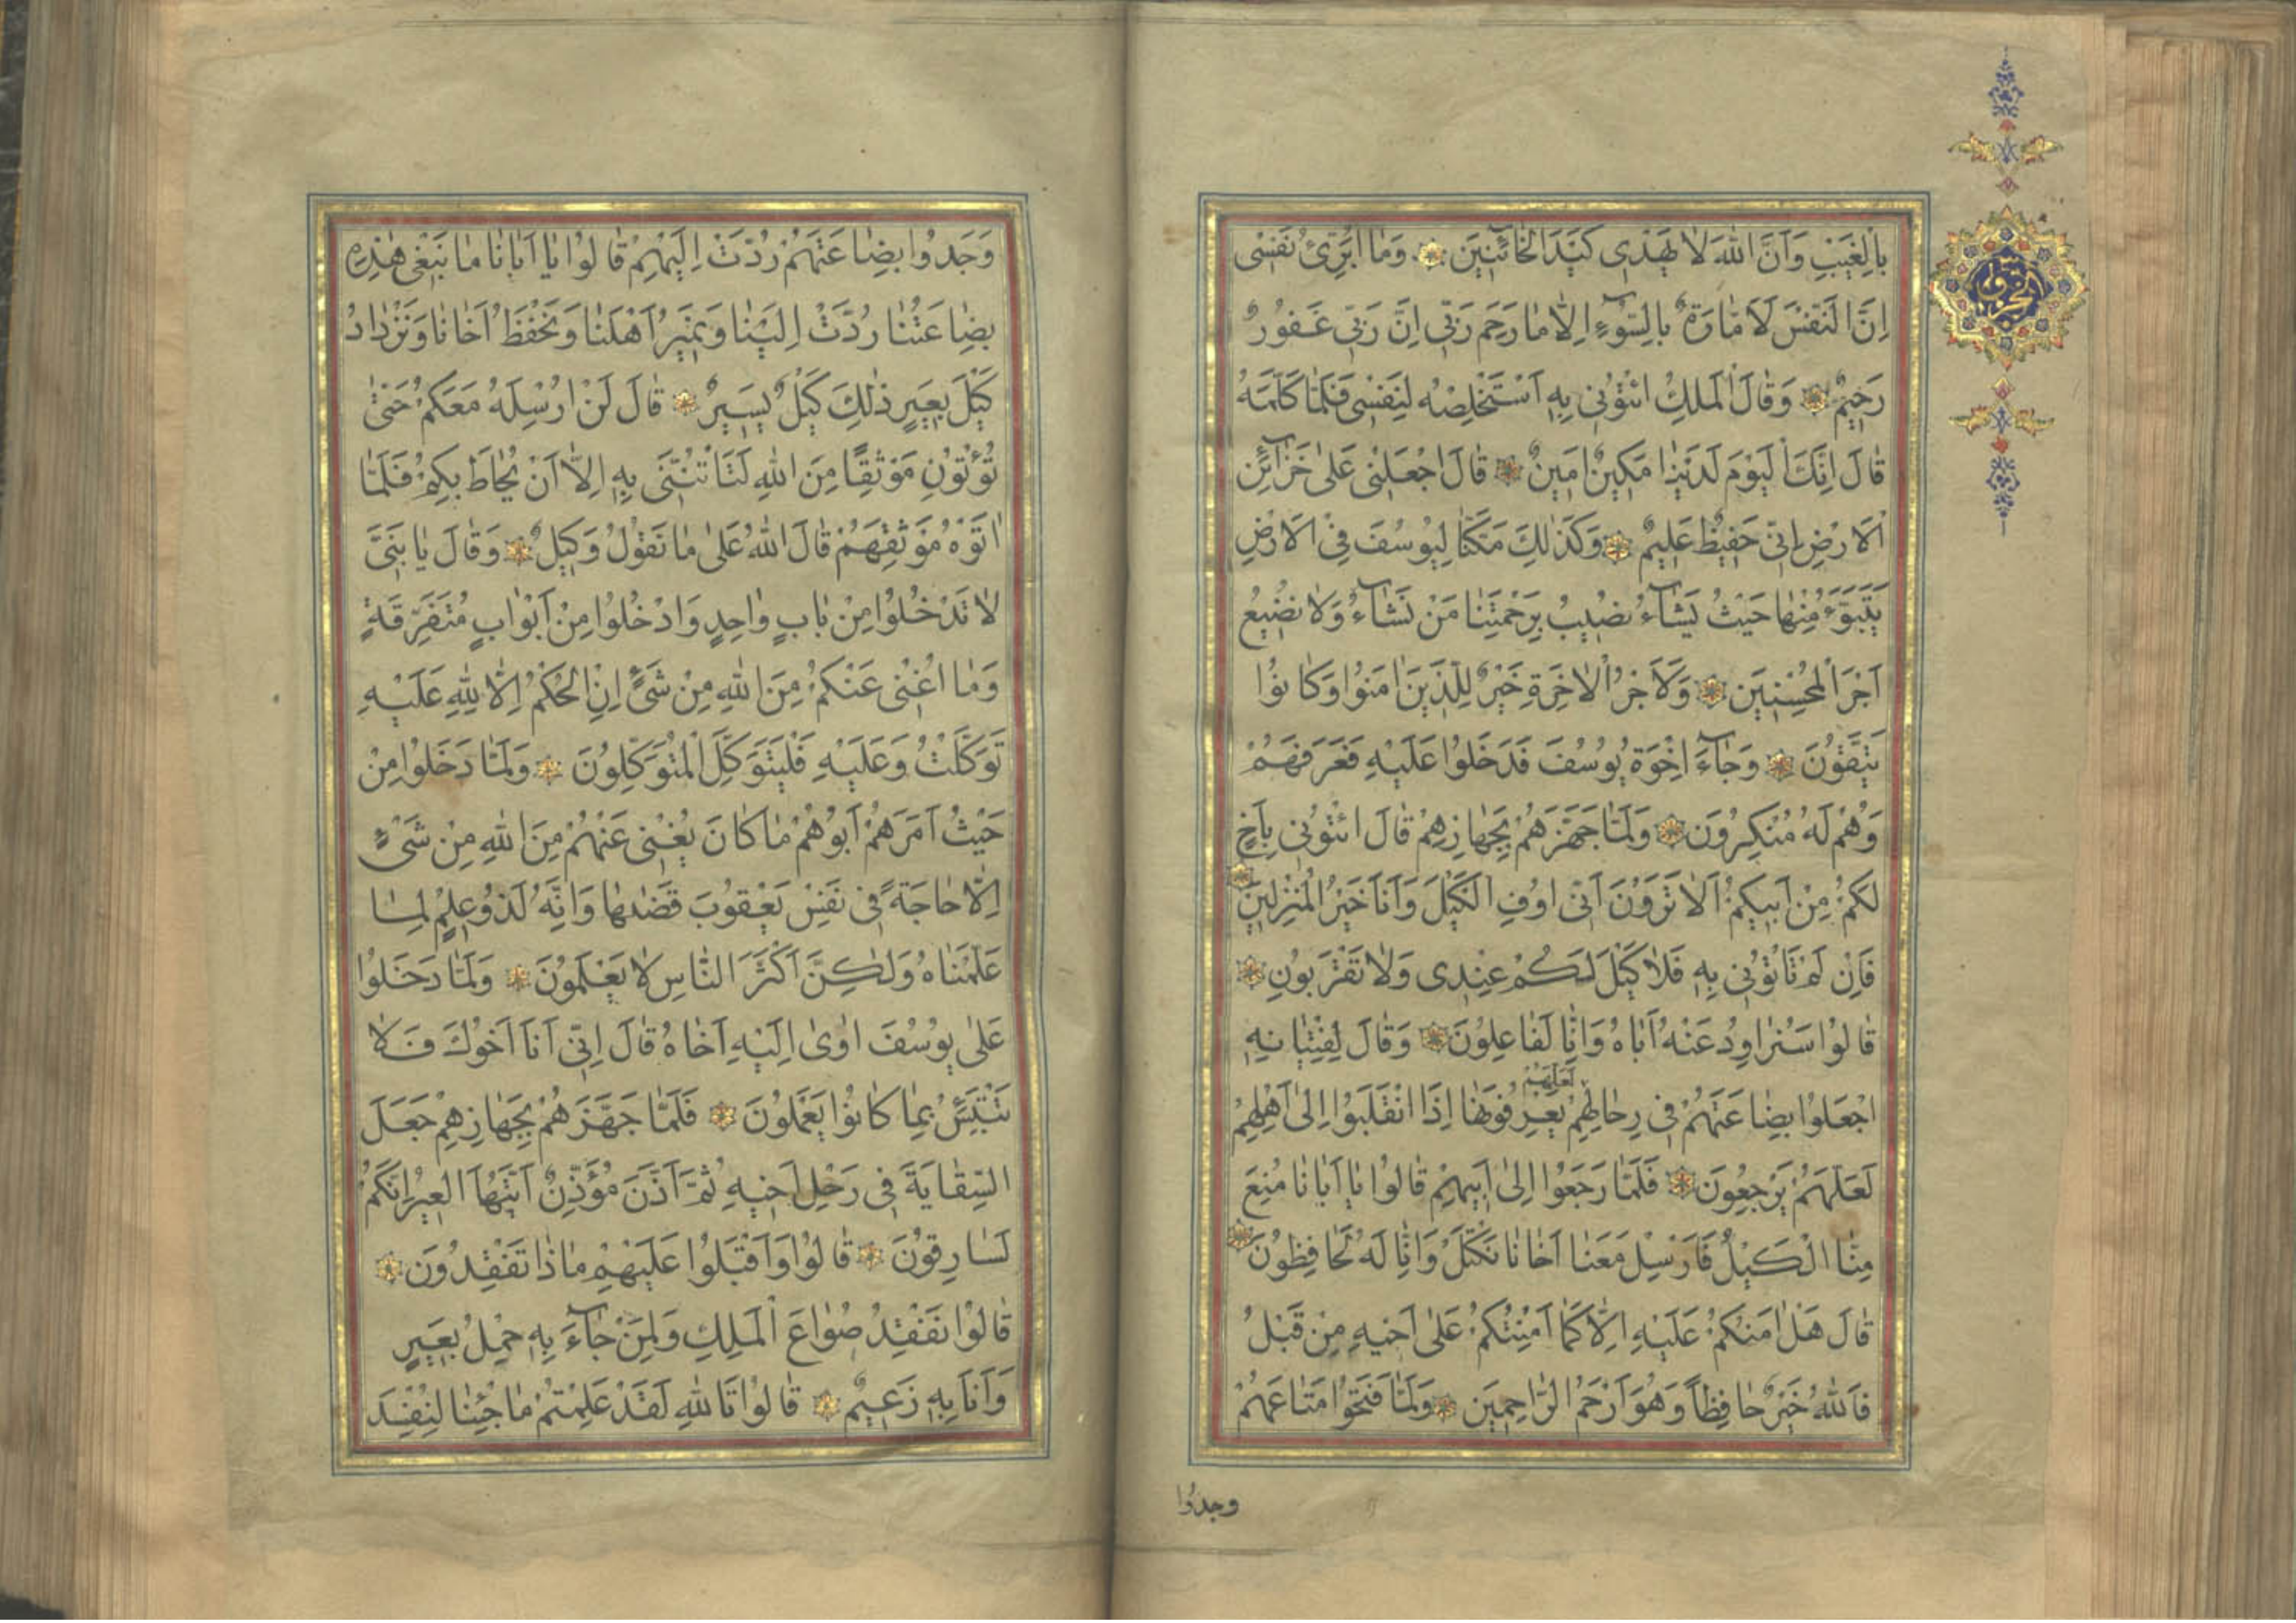 بِالْغَيْبِ وَاَنَّ اللّٰهَ لَا يَهْدٖى كَيْدَ الْخَٓائِنٖينَ وَمَا اُبَرِّئُ نَفْسٖى
اِنَّ النَّفْسَ لَاَمَّارَةٌ بِالسُّٓوءِ اِلَّا مَا رَحِمَ رَبّٖى اِنَّ رَبّٖى غَفُورٌ
رَحٖيمٌ وَقَالَ الْمَلِكُ ائْتُونٖى بِهٖ اَسْتَخْلِصْهُ لِنَفْسٖى فَلَمَّا كَلَّمَهُ
قَالَ اِنَّكَ الْيَوْمَ لَدَيْنَا مَكٖينٌ اَمٖينٌ قَالَ اجْعَلْنٖى عَلٰى خَزَٓائِنِ
الْاَرْضِ اِنّٖى حَفٖيظٌ عَلٖيمٌ وَكَذٰلِكَ مَكَّنَّا لِيُوسُفَ فِى الْاَرْضِ
يَتَبَوَّءُ مِنْهَا حَيْثُ يَشَٓاءُ نُصٖيبُ بِرَحْمَتِنَا مَنْ نَشَٓاءُ وَلَا نُضٖيعُ
اَجْرَ الْمُحْسِنٖينَ وَلَاَجْرُ الْاٰخِرَةِ خَيْرٌ لِلَّذٖينَ اٰمَنُوا وَكَانُوا
يَتَّقُونَ وَجَٓاءَ اِخْوَةُ يُوسُفَ فَدَخَلُوا عَلَيْهِ فَعَرَفَهُمْ
وَهُمْ لَهُ مُنْكِرُونَ وَلَمَّا جَهَّزَهُمْ بِجَهَازِهِمْ قَالَ ائْتُونٖى بِاَخٍ
لَكُمْ مِنْ اَبٖيكُمْ اَلَا تَرَوْنَ اَنّٖى اُوفِ الْكَيْلَ وَاَنَا خَيْرُ الْمُنْزِلٖينَ
فَاِنْ لَمْ تَاْتُونٖى بِهٖ فَلَا كَيْلَ لَكُمْ عِنْدٖى وَلَا تَقْرَبُونِ
قَالُوا سَنُرَاوِدُ عَنْهُ اَبَاهُ وَاِنَّا لَفَاعِلُونَ وَقَالَ لِفِتْيَانِهِ
لَعَلَّهُمْ
اجْعَلُوا بِضَاعَتَهُمْ فٖى رِحَالِهِمْ يَعْرِفُونَهَا اِذَا انْقَلَبُوا اِلٰى اَهْلِهِمْ
لَعَلَّهُمْ يَرْجِعُونَ فَلَمَّا رَجَعُوا اِلٰى اَبٖيهِمْ قَالُوا يَا اَبَانَا مُنِعَ
مِنَّا الْكَيْلُ فَاَرْسِلْ مَعَنَا اَخَانَا نَكْتَلْ وَاِنَّا لَهُ لَحَافِظُونَ
قَالَ هَلْ اٰمَنُكُمْ عَلَيْهِ اِلَّا كَمَا اَمِنْتُكُمْ عَلٰى اَخٖيهِ مِنْ قَبْلُ
فَاللّٰهُ خَيْرٌ حَافِظًا وَهُوَ اَرْحَمُ الرَّاحِمٖينَ وَلَمَّا فَتَحُوا مَتَاعَهُمْ
وجدُوا
وَجَدُوا بِضَاعَتَهُمْ رُدَّتْ اِلَيْهِمْ قَالُوا يَا اَبَانَا مَا نَبْغٖى هٰذِهٖ
بِضَاعَتُنَا رُدَّتْ اِلَيْنَا وَنَمٖيرُ اَهْلَنَا وَنَحْفَظُ اَخَانَا وَنَزْدَادُ
كَيْلَ بَعٖيرٍ ذٰلِكَ كَيْلٌ يَسٖيرٌ قَالَ لَنْ اُرْسِلَهُ مَعَكُمْ حَتّٰى
تُؤْتُونِ مَوْثِقًا مِنَ اللّٰهِ لَتَاْتُنَّنٖى بِهٖ اِلَّا اَنْ يُحَاطَ بِكُمْ فَلَمَّا
اٰتَوْهُ مَوْثِقَهُمْ قَالَ اللّٰهُ عَلٰى مَا نَقُولُ وَكٖيلٌ وَقَالَ يَا بَنِىَّ
لَا تَدْخُلُوا مِنْ بَابٍ وَاحِدٍ وَادْخُلُوا مِنْ اَبْوَابٍ مُتَفَرِّقَةٍ
وَمَا اُغْنٖى عَنْكُمْ مِنَ اللّٰهِ مِنْ شَىْءٍ اِنِ الْحُكْمُ اِلَّا لِلّٰهِ عَلَيْهِ
تَوَكَّلْتُ وَعَلَيْهِ فَلْيَتَوَكَّلِ الْمُتَوَكِّلُونَ وَلَمَّا دَخَلُوا مِنْ
حَيْثُ اَمَرَهُمْ اَبُوهُمْ مَا كَانَ يُغْنٖى عَنْهُمْ مِنَ اللّٰهِ مِنْ شَىْءٍ
اِلَّا حَاجَةً فٖى نَفْسِ يَعْقُوبَ قَضٰيهَا وَاِنَّهُ لَذُو عِلْمٍ لِمَا
عَلَّمْنَاهُ وَلٰكِنَّ اَكْثَرَ النَّاسِ لَا يَعْلَمُونَ وَلَمَّا دَخَلُوا
عَلٰى يُوسُفَ اٰوٰى اِلَيْهِ اَخَاهُ قَالَ اِنّٖى اَنَا اَخُوكَ فَلَا
تَبْتَئِسْ بِمَا كَانُوا يَعْمَلُونَ فَلَمَّا جَهَّزَهُمْ بِجَهَازِهِمْ جَعَلَ
السِّقَايَةَ فٖى رَحْلِ اَخٖيهِ ثُمَّ اَذَّنَ مُؤَذِّنٌ اَيَّتُهَا الْعٖيرُ اِنَّكُمْ
لَسَارِقُونَ قَالُوا وَاَقْبَلُوا عَلَيْهِمْ مَاذَا تَفْقِدُونَ
قَالُوا نَفْقِدُ صُوَاعَ الْمَلِكِ وَلِمَنْ جَٓاءَ بِهٖ حِمْلُ بَعٖيرٍ
وَاَنَا بِهٖ زَعٖيمٌ قَالُوا تَاللّٰهِ لَقَدْ عَلِمْتُمْ مَا جِئْنَا لِنُفْسِدَ